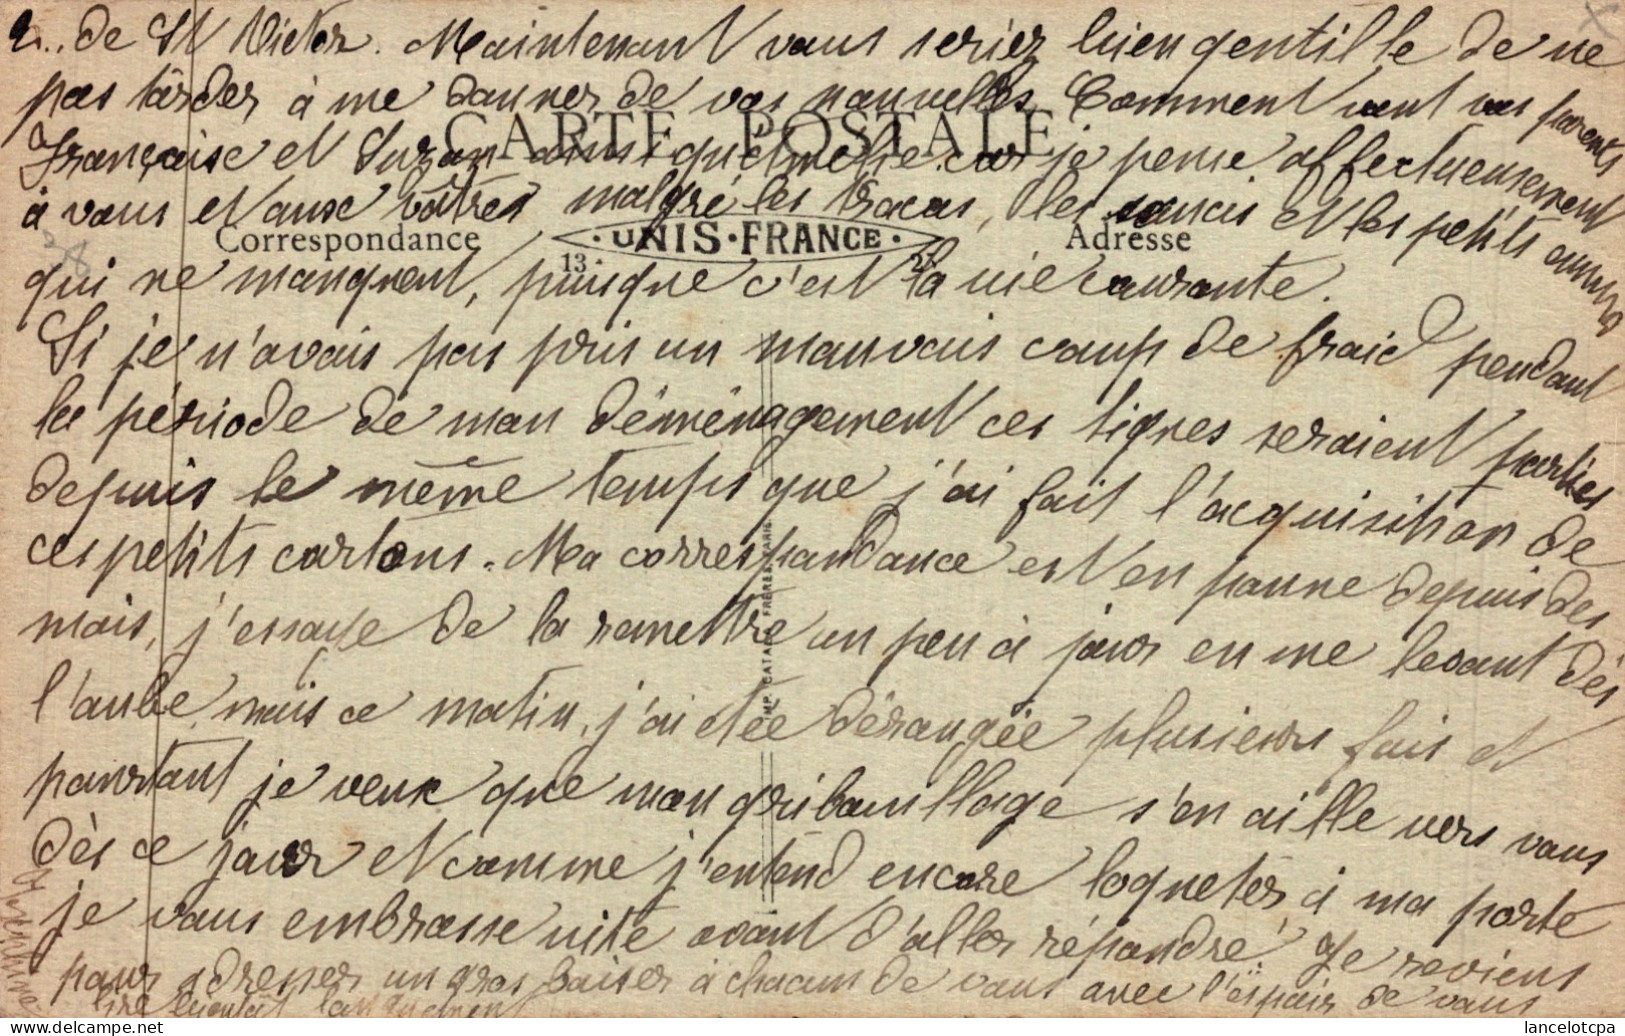 2... de St Victor. Maintenant vous seriez bien gentille de ne
pas tarder à me donner de vos nouvelles. Comment vont vos parents
CARTE POSTALE
Françoise et Suzan ainsi qu'Amélie car je pense affectueusement
à vous et aux vôtres malgré les tracas, les soucis et les petits ennuis
Correspondance
UNIS-FRANCE
Adresse
13
qui ne manquent, puisque c'est la vie courante.
Si je n'avais pas pris un mauvais coup de froid pendant
la période de mon déménagement ces lignes seraient parties
depuis le même temps que j'ai fait l'acquisition de
ces petits cartons. Ma correspondance est en panne depuis des
mois, j'essaye de la remettre un peu à jour en me levant dès
IMP. CATALA FRERES PARIS
l'aube, mais ce matin, j'ai étée dérangée plusieurs fois et
pourtant je veux que mon gribouillage s'en aille vers vous
dès ce jour et comme j'entend encore loqueter à ma porte
je vous embrasse vite avant d'aller répondre. Je reviens
pour adresser un gros baiser à chacun de vous avec l'espoir de vous
lire bientôt longuement
lancelotcpa